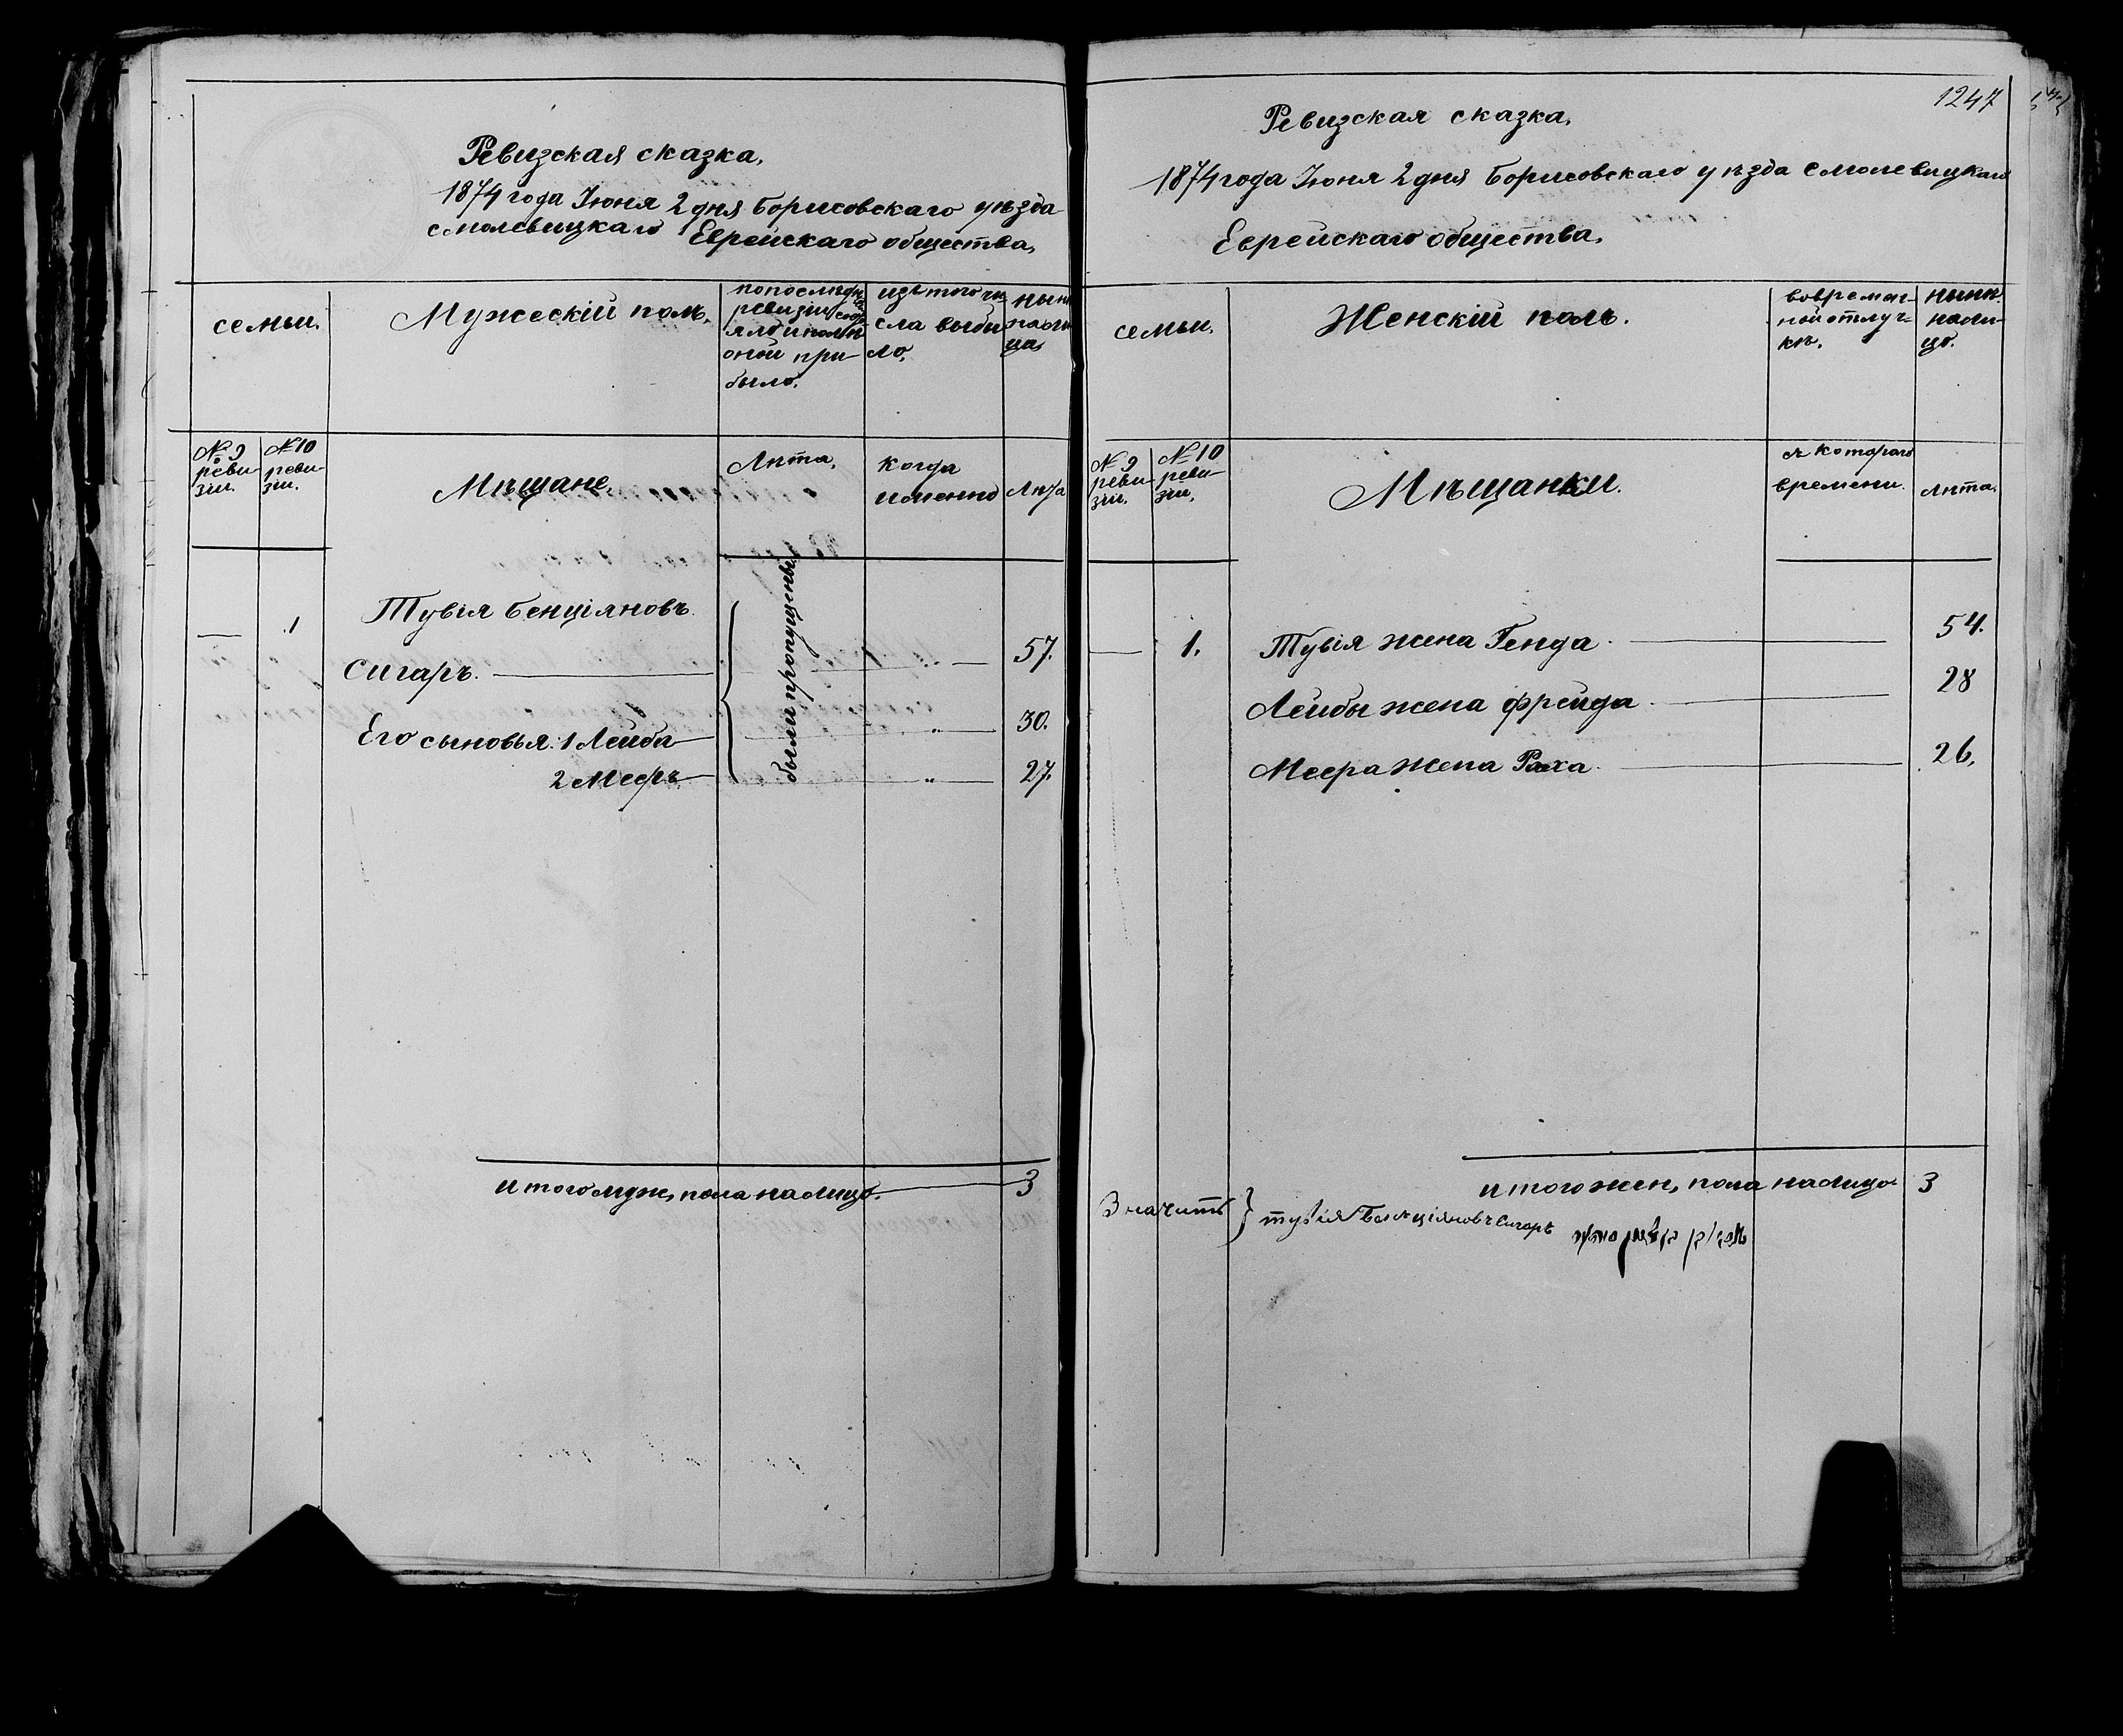 Ревизская сказка,
1874 года Іюня 2 дня Борисовскаго уѣзда
Смолевицкаго Еврейскаго общества,
семьи.
Мужескій полъ.
по послѣдн.
ревизіи
оной при-
было,
изъ того чи-
сла выбы
ло,
нынѣ
№ 9
реви-
зіи.
№ 10
реви-
зіи.
Мѣщане.
Лѣта,
когда
именно
Лѣта
были пропущены
— 1
Тувія Бенціяновъ
Сигаръ. 57.
Его сыновья: 1 Лейба " 30.
2 Мееръ " 27.
итого муж, пола налицо. 3
1247
Ревизская сказка,
1874 года Іюня 2 дня Борисовскаго уѣзда Смолевицкаго
Еврейскаго общества,
семьи.
Женскій полъ.
во времен-
ной отлуч-
кѣ,
нынѣ
нали-
цо.
№ 9
реви-
зіи.
№ 10
реви-
зіи,
Мѣщанки.
съ котораго
времени.
Лѣта.
— 1. Тувія жена Генда 54.
Лейбы жена Фрейда 28
Меера жена Раха 26,
итого жен, пола налицо 3
Значитъ } Тувія Бенціяновъ Сигаръ